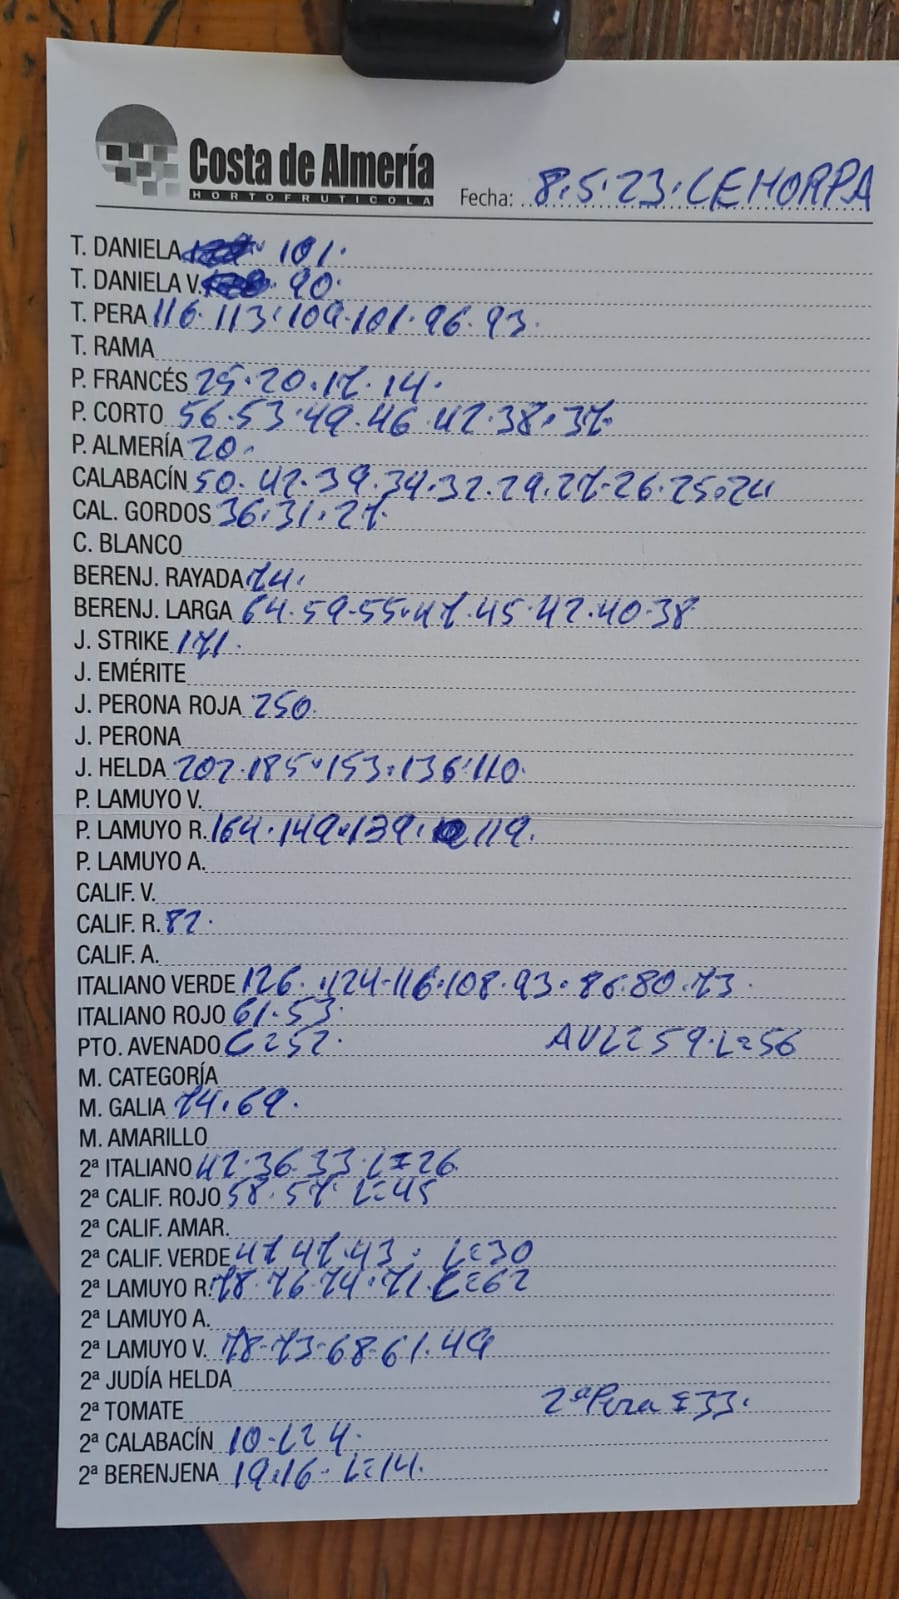 Costa de Almería
HORTOFRUTICOLA
Fecha: 8.5.23. CEHORPA
T. DANIELA 101.
T. DANIELA V. 90.
T. PERA 116. 113. 109. 101. 96. 93.
T. RAMA
P. FRANCÉS 25. 20. 17. 14.
P. CORTO 56. 53. 49. 46 42. 38. 37.
P. ALMERÍA 20.
CALABACÍN 50. 42. 39. 34. 32. 29. 27. 26. 25. 24
CAL. GORDOS 36. 31. 27.
C. BLANCO
BERENJ. RAYADA 74.
BERENJ. LARGA 64. 59. 55. 47. 45. 42. 40. 38
J. STRIKE 171.
J. EMÉRITE
J. PERONA ROJA 250.
J. PERONA
J. HELDA 202. 185. 153. 136. 110.
P. LAMUYO V.
P. LAMUYO R. 164. 149. 139. 119.
P. LAMUYO A.
CALIF. V.
CALIF. R. 82.
CALIF. A.
ITALIANO VERDE 126. 124. 116. 108. 93. 86. 80. 73.
ITALIANO ROJO 61. 53.
PTO. AVENADO C=52. AVL=59. L=56
M. CATEGORÍA
M. GALIA 74. 69.
M. AMARILLO
2ª ITALIANO 42. 36. 33. L=26
2ª CALIF. ROJO 58. 57. L=45
2ª CALIF. AMAR.
2ª CALIF. VERDE 47 47. 43. L=30
2ª LAMUYO R. 78. 76. 74. 71. L=62
2ª LAMUYO A.
2ª LAMUYO V. 78. 73. 68. 61. 49
2ª JUDÍA HELDA
2ª TOMATE 2ª Pera = 33.
2ª CALABACÍN 10. L=4.
2ª BERENJENA 19. 16. L=14.